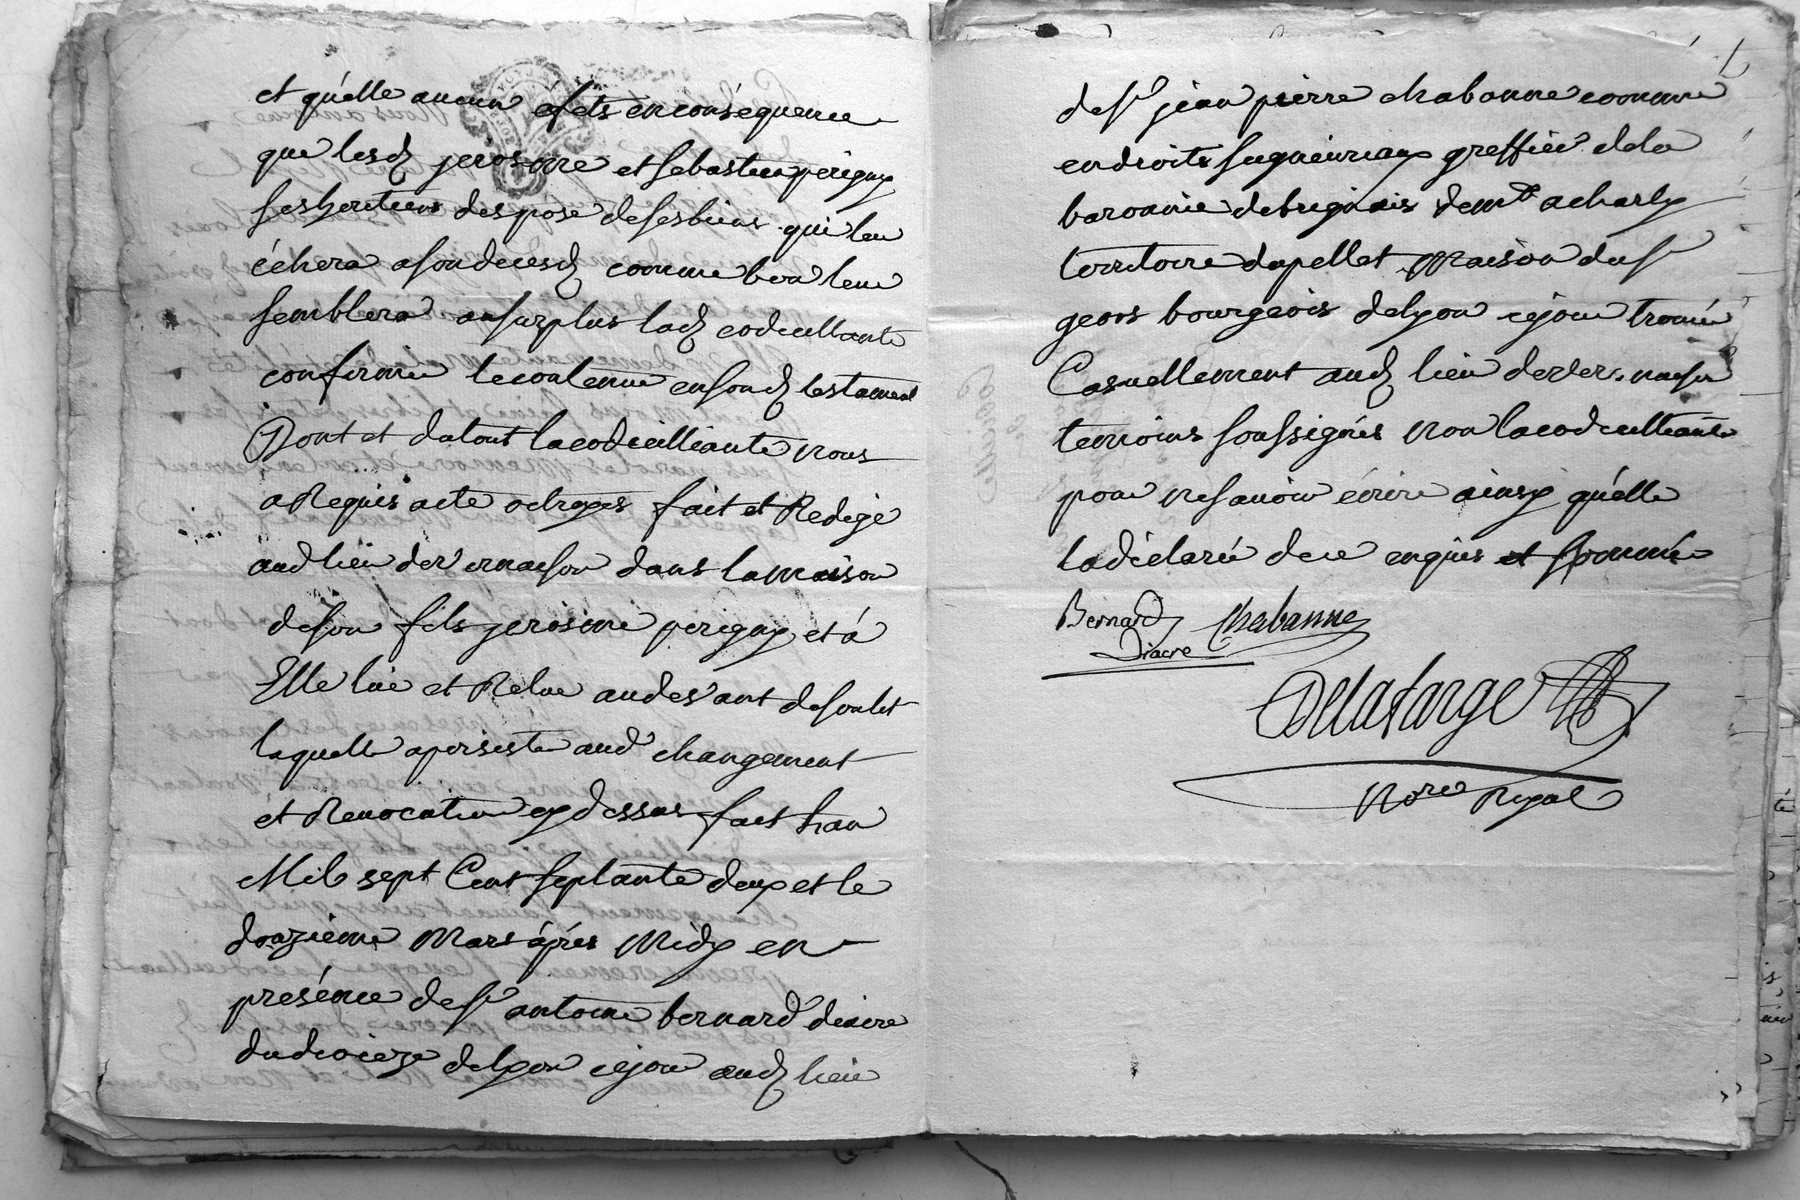 et qu'elle aucun efets en conséquence
que lesd jerosme et sebastien perigny
ses heritiers despose de ses biens qui leu
échera a son decesd comme bon leur
semblera au surplus lad codicillante
confirme le contenue en sond testament
Dont et du tout la codicilliante nous
a Requis acte octroyes fait et Redigé
aud lieu de vernaison dans la maison
de son fils jerosme perigny et à
Elle lüe et Relue au devant de son lit
laquelle a persisté aud changement
et Revocation cy dessus fait l'an
Mil sept Cent septante deux et le
douzieme Mars après Midy en
présence de sr antoine bernard diacre
du diocèze de lyon ce jour aud lieu
de sr jean pierre chabanne commre
en droits seigneuriaux greffier de la
baronnie de brignais demt a charly
territoire dapellet maison du sr
geors bourgeois de lyon ce jour trouvé
Casuellement aud lieu de vernaison
temoins soussignés non la codicilliante
pour ne savoir écrire ainsy qu'elle
la déclaré de ce enquis et sommée
Bernard Chabanne
Diacre
Delafarge
Nore Royal